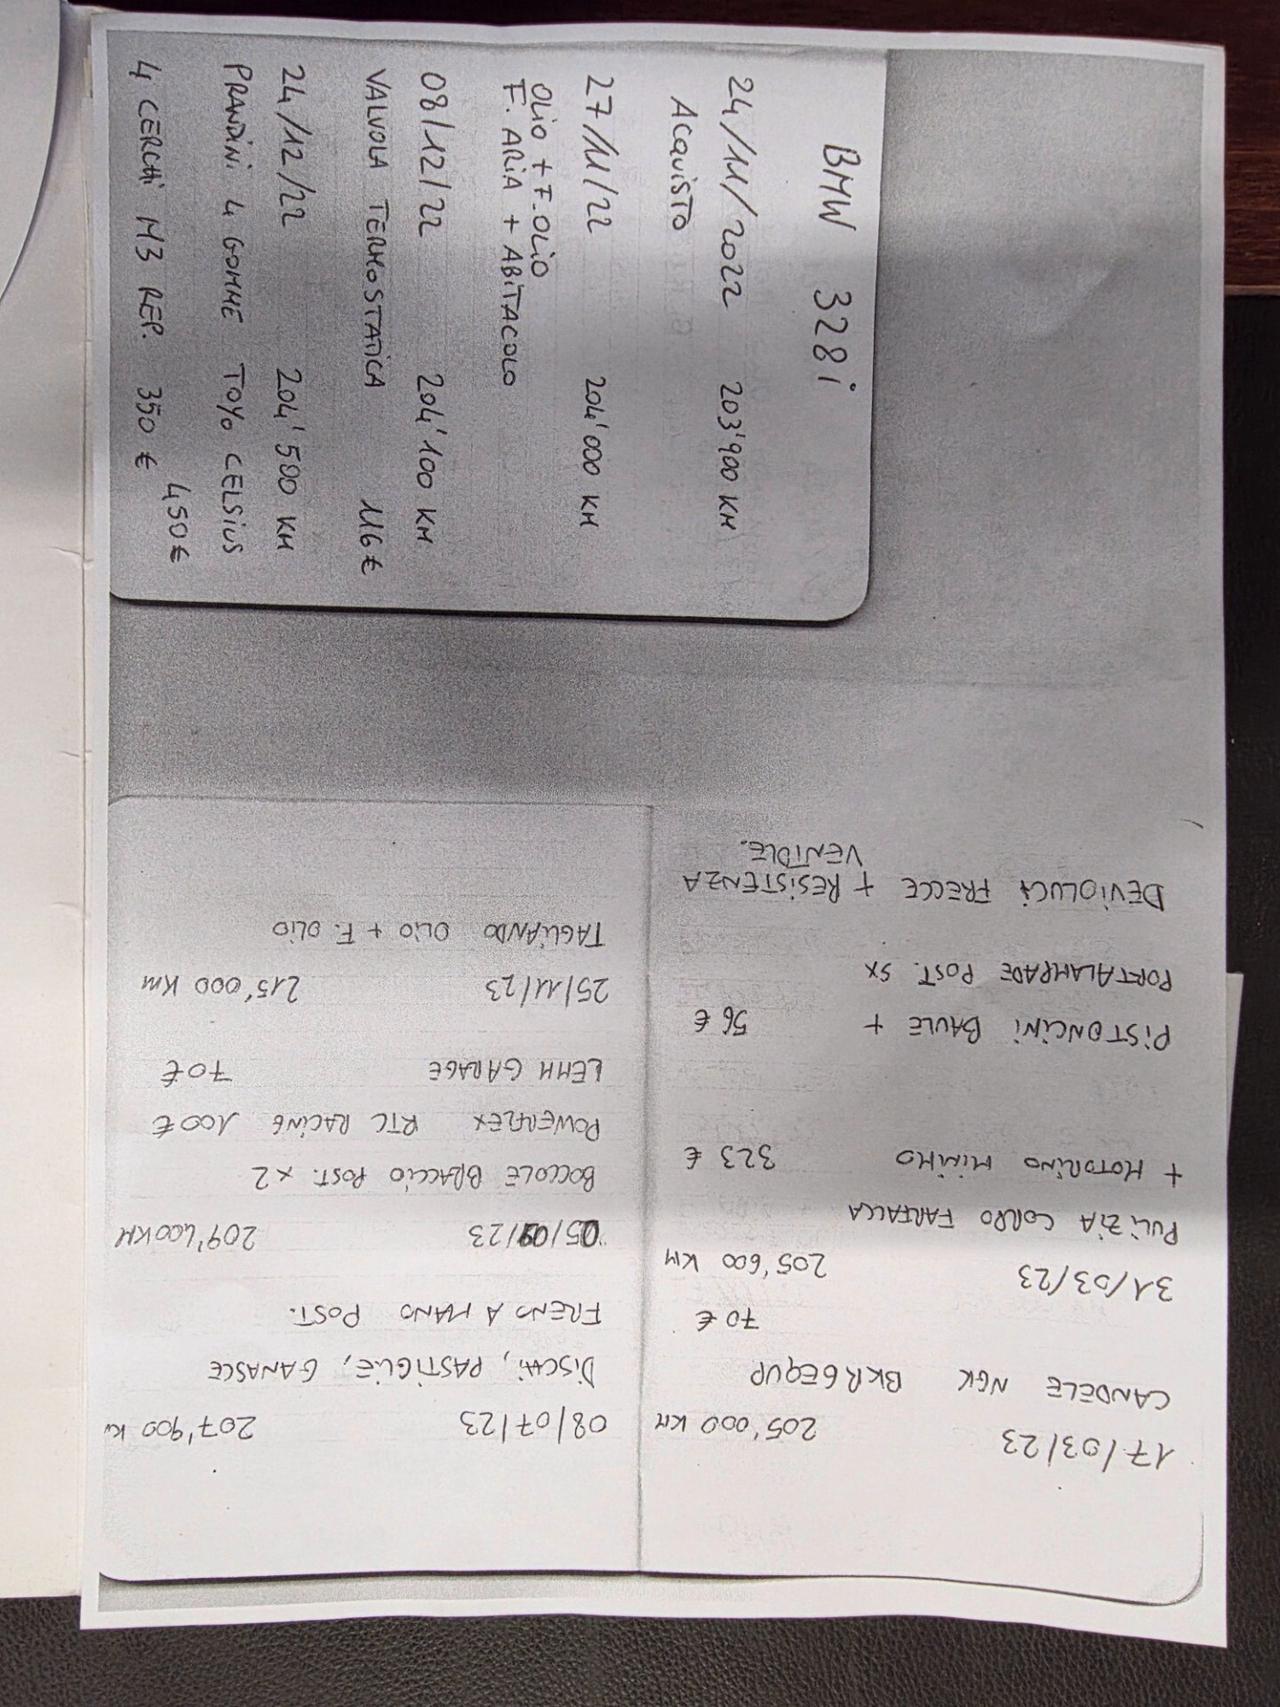 BMW 328i
24/11/2022 203'900 KM
Acquisto
27/11/22 204'000 KM
OLIO + F.OLIO
F. ARIA + ABITACOLO
08/12/22 204'100 KM
VALVOLA TERMOSTATICA 116€
24/12/22 204'500 KM
PRANDINI 4 GOMME TOYO CELSIUS
450€
4 CERCHI M3 REP. 350 €
17/03/23 205'000 KM
CANDELE NGK BKR6EQUP
70 €
31/03/23 205'600 KM
PULIZIA CORPO FARFALLA
+ MOTORINO MINIMO 323 €
PISTONCINI BAULE + 56 €
PORTALAMPADE POST. SX
DEVIOLUCI FRECCE + RESISTENZA
VENTOLE.
08/07/23 207'900 KM
DISCHI, PASTIGLIE, GANASCE
FRENO A MANO POST.
05/09/23 209'400 KM
BOCCOLE BRACCIO POST. x2
POWERFLEX RTC RACING 100€
LEMM GARAGE 70€
25/11/23 215'000 KM
TAGLIANDO OLIO + F. OLIO